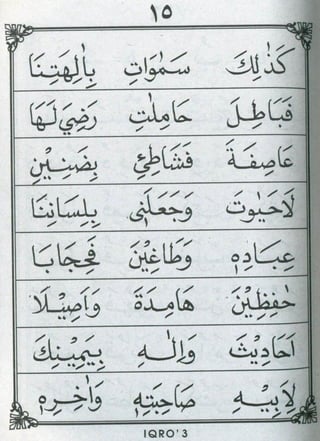 ١٥
كَذٰلِكَ سَمٰوَاتِ بِاٰلِهَتِنَا
فَبَاطِلَ حَامِلٰتِ رَضِيَ لَهَا
عَاصِفَةَ فَشَاطِئِ بِضَنِيْنٍ
لَاحَيٰوتَ وَجَعَلَنٰى بِلِسَانِنَا
عِبَادِهٖ وَطَاغِيْنَ فَحِجَابَا
حٰفِظِيْنَ هَامِدَةَ وَاَصِيْلًا
اَحَادِيْثَ وَاِلٰهِ بِيَمِيْنِكَ
لِاَبِيْهِ صَاحِبَتِهٖ وَاٰخِرِهٖ
IQRO'3